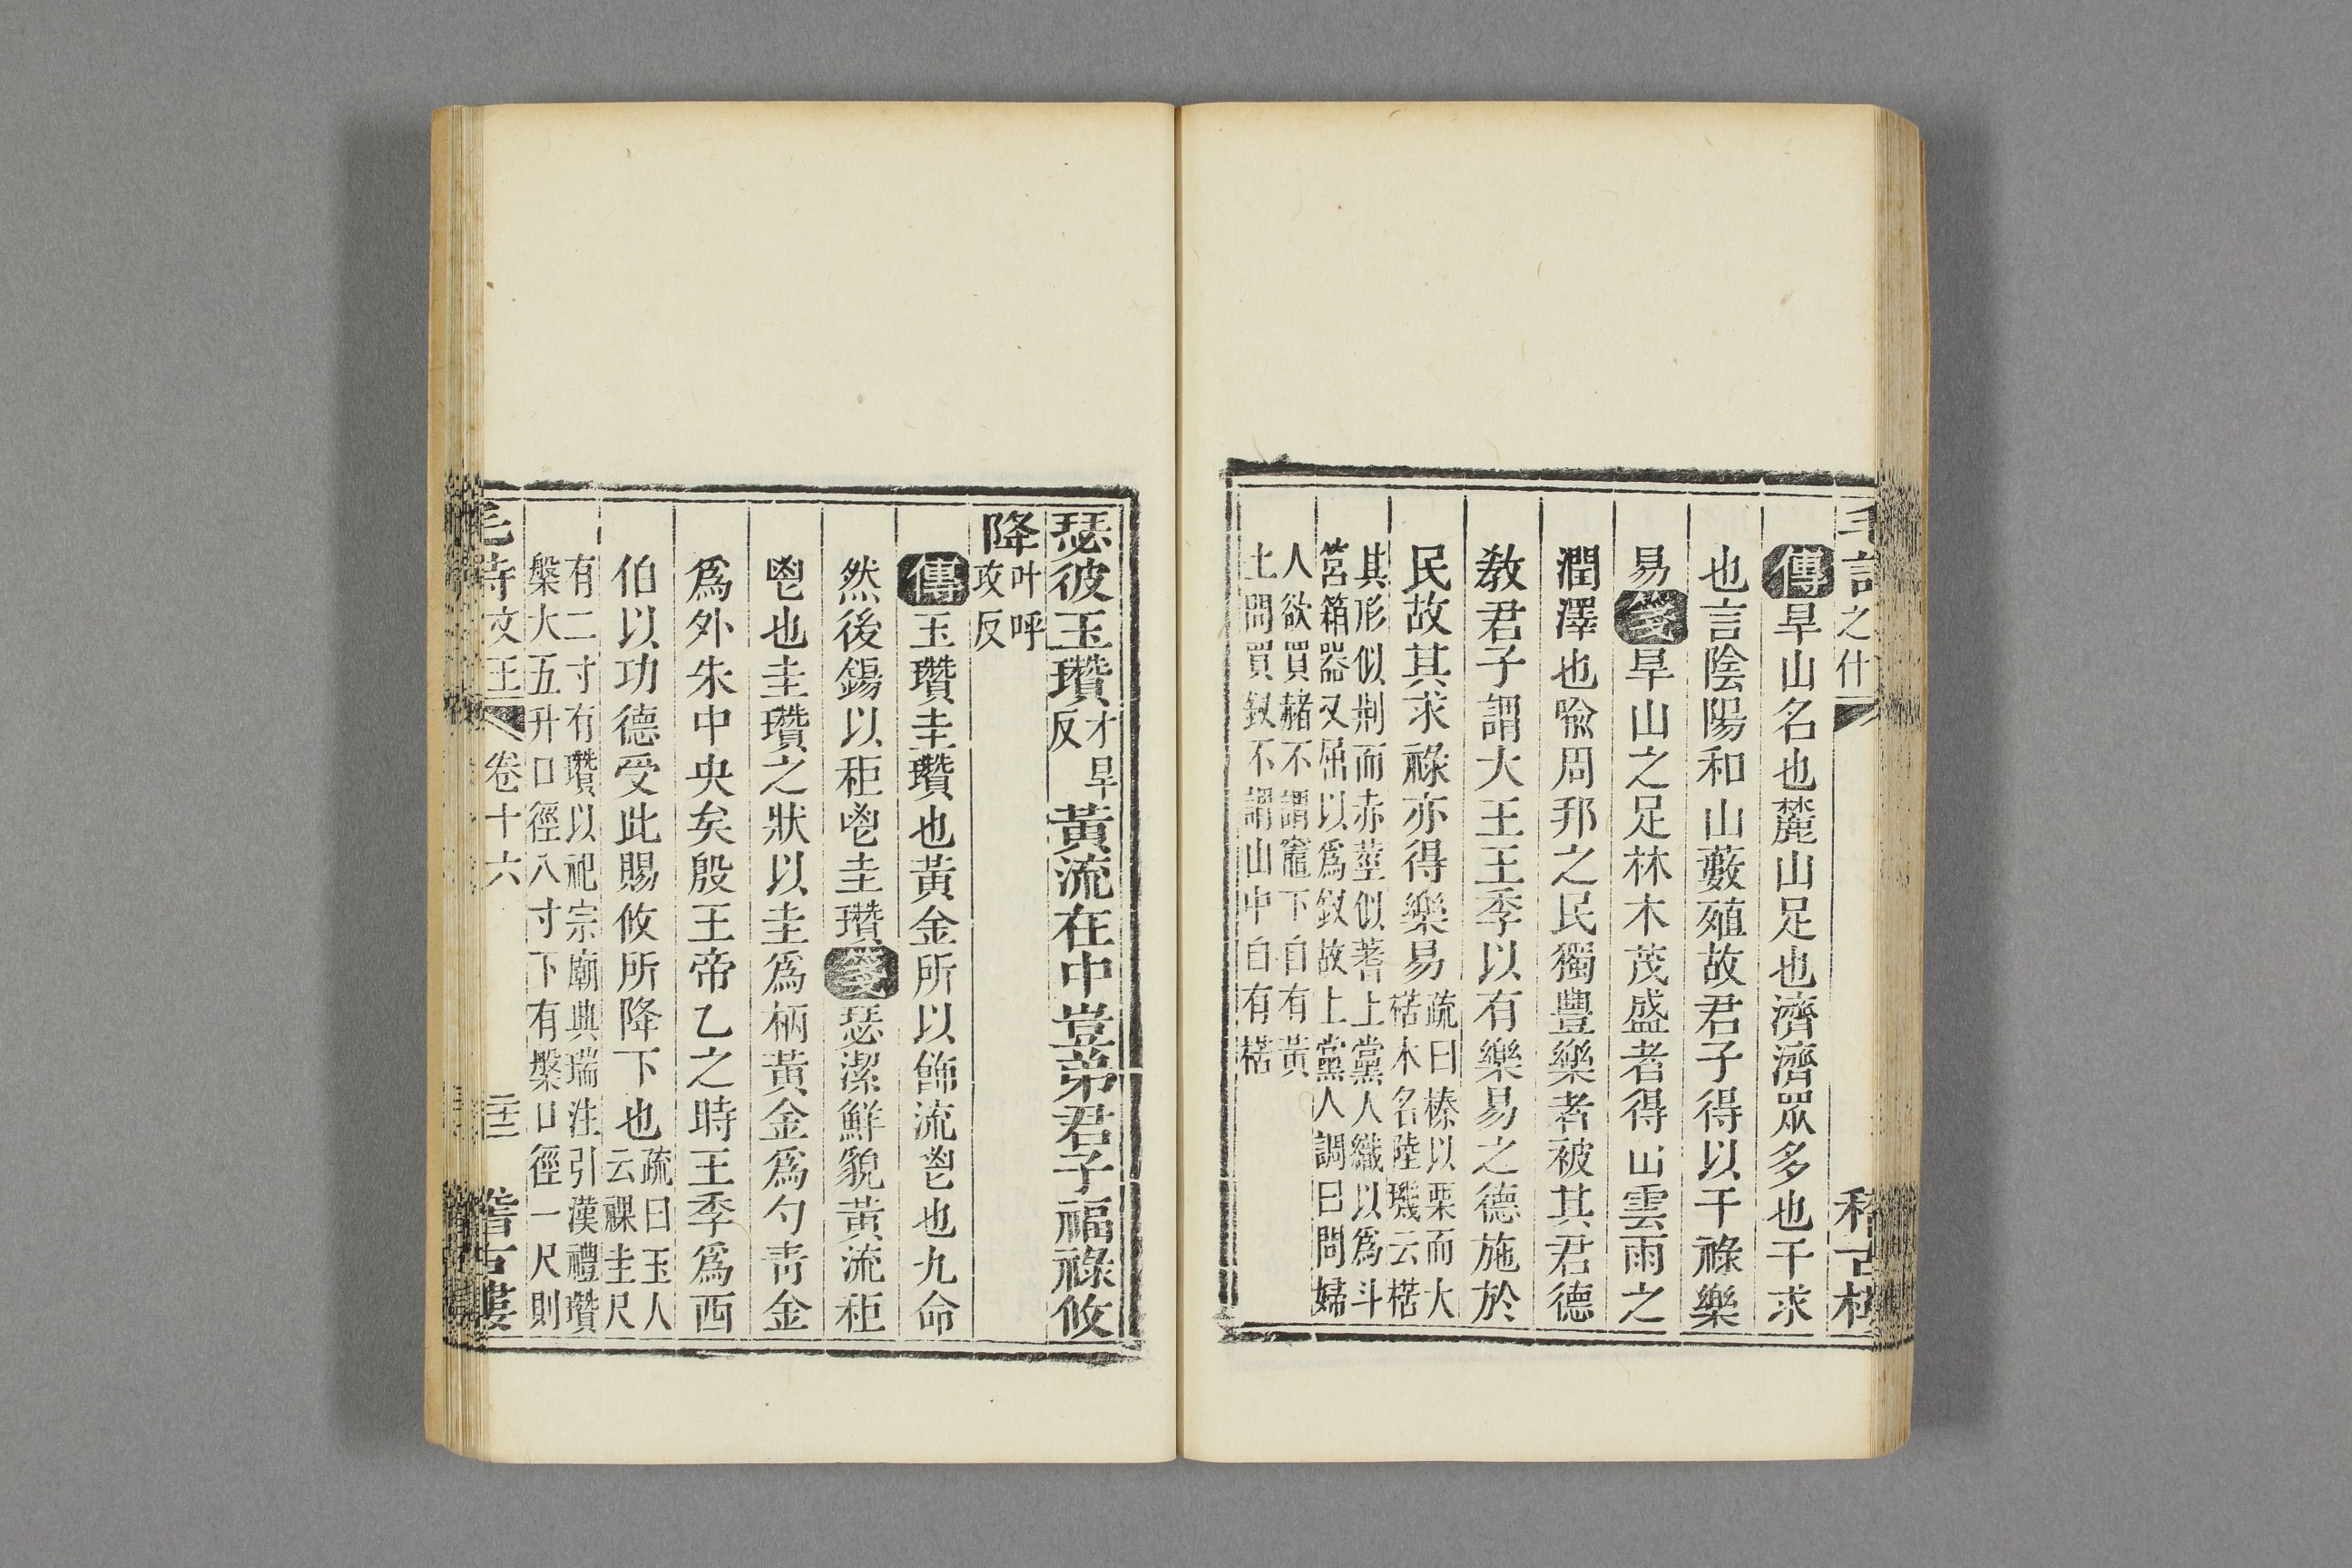 之什
傳旱山名也麓山足也濟濟眾多也干求
也言陰陽和山藪殖故君子得以干祿樂
易箋旱山之足林木茂盛者得山雲雨之
潤澤也喻周邦之民獨豐樂者被其君德
敎君子謂大王王季以有樂易之德施於
民故其求祿亦得樂易疏曰榛以栗而大
楛木名陸璣云楛
其形似荆而赤莖似蓍上黨人織以爲斗
筥箱器又屈以爲釵故上黨人調曰問婦
人欲買赭不謂竈下自有黃
土問買釵不謂山中自有楛
瑟彼玉瓚才旱
反黃流在中豈弟君子福祿攸
降叶呼
攻反
傳玉瓚圭瓚也黃金所以飾流鬯也九命
然後錫以秬鬯圭瓚箋瑟潔鮮貌黃流秬
鬯也圭瓚之狀以圭爲柄黃金爲勺靑金
爲外朱中央矣殷王帝乙之時王季爲西
伯以功德受此賜攸所降下也疏曰玉人
云祼圭尺
有二寸有瓚以祀宗廟典瑞注引漢禮瓚
槃大五升口徑八寸下有槃口徑一尺則
毛詩文王 卷十六 二十三 稽古樓